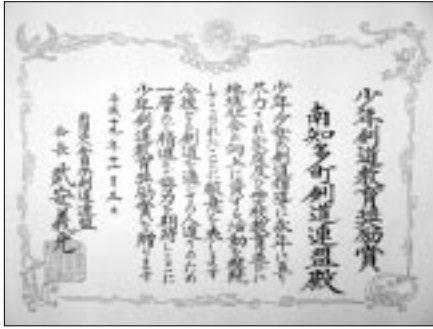 少年剣道教育奨励賞
南知多町剣道連盟殿
少年少女の剣道指導に永年に亘り
尽力され礼節を学校教育並に
地域社会の向上に資する活動を継続
してこられたことに敬意を表します
今後とも剣道を通じて人造りのため
一層のご精進とご協力を期待しここに
少年剣道教育奨励賞を贈ります
平成十九年十一月三日
財団法人全日本剣道連盟
会長 武安義光